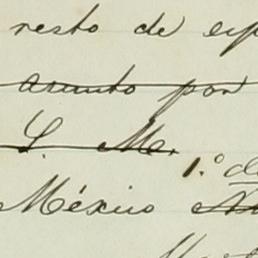 resto de
asunto por
S. M.
1.º de
México